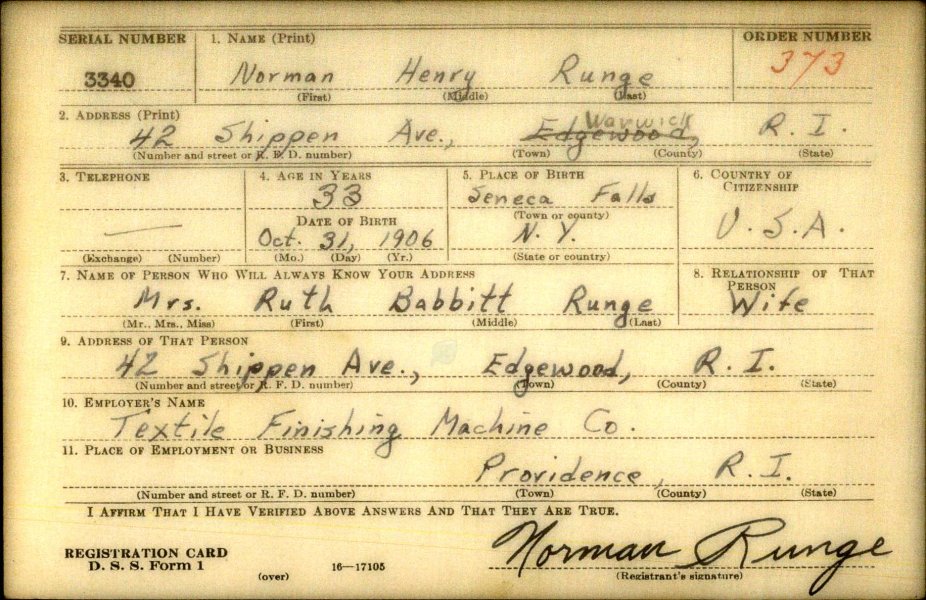 SERIAL NUMBER 1. NAME (Print) ORDER NUMBER
3340 Norman Henry Runge 373
(First) (Middle) (Last)
2. ADDRESS (Print) Warwick
42 Shippen Ave., Edgewood, R. I.
(Number and street or R. F. D. number) (Town) (County) (State)
3. TELEPHONE 4. AGE IN YEARS 5. PLACE OF BIRTH 6. COUNTRY OF CITIZENSHIP
33 Seneca Falls
DATE OF BIRTH (Town or county)
— Oct. 31, 1906 N. Y. U. S. A.
(Exchange) (Number) (Mo.) (Day) (Yr.) (State or country)
7. NAME OF PERSON WHO WILL ALWAYS KNOW YOUR ADDRESS 8. RELATIONSHIP OF THAT PERSON
Mrs. Ruth Babbitt Runge Wife
(Mr., Mrs., Miss) (First) (Middle) (Last)
9. ADDRESS OF THAT PERSON
42 Shippen Ave., Edgewood, R. I.
(Number and street or R. F. D. number) (Town) (County) (State)
10. EMPLOYER'S NAME
Textile Finishing Machine Co.
11. PLACE OF EMPLOYMENT OR BUSINESS
Providence, R. I.
(Number and street or R. F. D. number) (Town) (County) (State)
I AFFIRM THAT I HAVE VERIFIED ABOVE ANSWERS AND THAT THEY ARE TRUE.
Norman Runge
REGISTRATION CARD
D. S. S. Form 1 (over) 16—17105 (Registrant's signature)